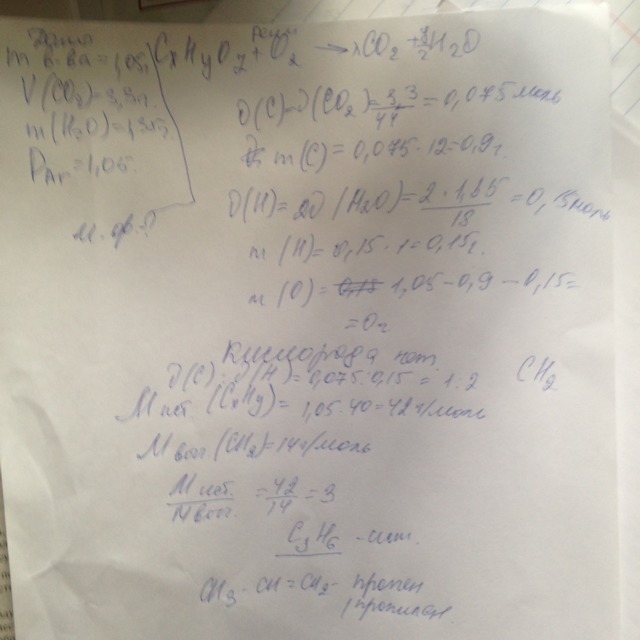 Дано
m в-ва = 1,05г
V(CO₂)=3,3г.
m(H₂O)=1,35г.
D Ar = 1,05.
М. ф. ?
Решен
CxHyOz + O₂ → xCO₂ + y/2 H₂O
ν(C)=ν(CO₂)=3,3/44=0,075 моль
m(C)=0,075·12=0,9г.
ν(H)=2ν(H₂O)=2·1,35/18=0,15моль
m(H)=0,15·1=0,15г.
m(O)= 1,05-0,9-0,15=
=0г
Кислорода нет.
ν(C) ν(H)=0,075:0,15=1:2 CH₂
M ист (CxHy)=1,05·40=42г/моль
M (CH₂)=14г/моль
M ист/M =42/14=3
C₃H₆ - ист.
CH₃-CH=CH₂- пропен
/пропилен